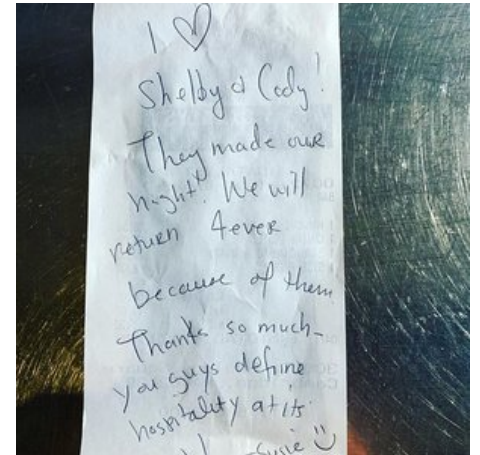 I ♡
Shelby & Cody!
They made our
night! We will
return 4ever
because of them
Thanks so much-
you guys define
hospitality at its
Susie